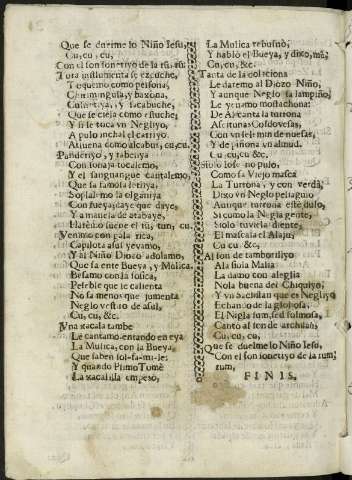 Que se duelme lo Niño Iesu,
Cu, cu, cu,
Con el son sonetiyo de la tu, tu:
Tota instlumenta se escuche,
Toquemo como pelsona,
Chilimingula, y baxona,
y sacabuche,
Que se ciela como estuche,
Y si se toca vn Negliyo,
A pulo inchal el carriyo.
Atluena como alcabus, cu, cu
Panderiyo, y tabeliya
Con sonaja tocalemo,
Y el sangnangue cantalemo,
Que sa famosa letriya,
Soplalemo la
Con fueyaçaye que diye,
Y a manela de atabaye,
Halemo suene el tu, tun, cu.
Venimo con gala rica,
Capilota asul yevamo,
Y al Niño Diozo adolamo,
Que sa ente Bueya, y Mulica.
Besamo con la fosica,
Peseble que le calienta
No sa menos que jumenta
Neglo vestiro de asul,
Cu, cu, &c.
Vna xacala tambe
Le cantamo entando en eya
La Mulica, con la Bueya,
Que saben sol-fa-mi-le:
Y quando Plimo Tomè
La xacalilla empeso,
La Mulica rebusnò,
Y hablò el Bueya, y dixo, mù;
Cu, cu, &c.
Tanta de la colaciona
Le daremo al Diozo Niño,
Y aunque Neglo sa lampiño,
Le yevamo mostachona:
De Alicanta la turrona
Aseituna Cosdovesas,
Con vn selemin de nuesas,
Y de piñona vn almud.
Cu cu, cu, &c.
Siolo Iose no pulo,
Como sa Viejo masca
La Turrona, y con verdà,
Dixo vn Neglo peliaguro
Aunque turrona este dulo,
Si como la Negla gente,
Siolo tuviela diente,
El mascala el Alajù,
Cu cu, &c,
Al son de tamboriliyo
Ala siola Malia
La damo con aleglia
Nola buena del Chiquiyo,
Y vn Bachilan que es Negliyo
Echando de la glolosa.
El Nigla sum, sed fulmosa,
Canto al son de archilaùd,
Cu, cu, cu,
Que se duelme lo Niño Iesu,
Con el son sonetiyo de la tum,
tum,
FINIS.